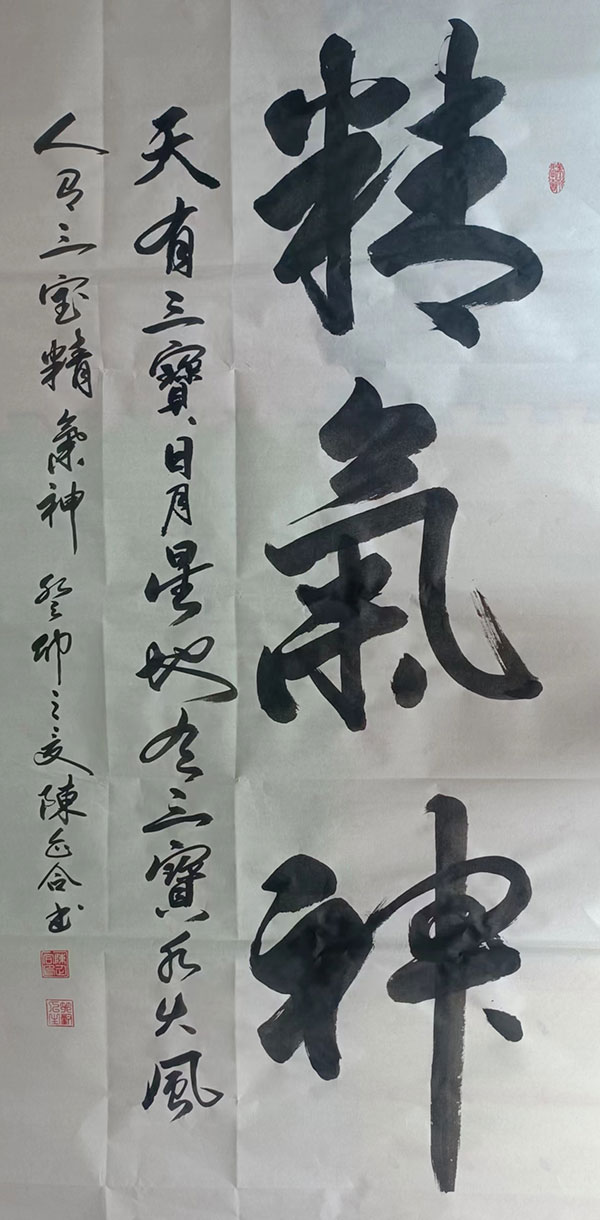 精氣神
天有三寶日月星地有三寶水火風
人有三宝精氣神 癸卯之夏陳
合书